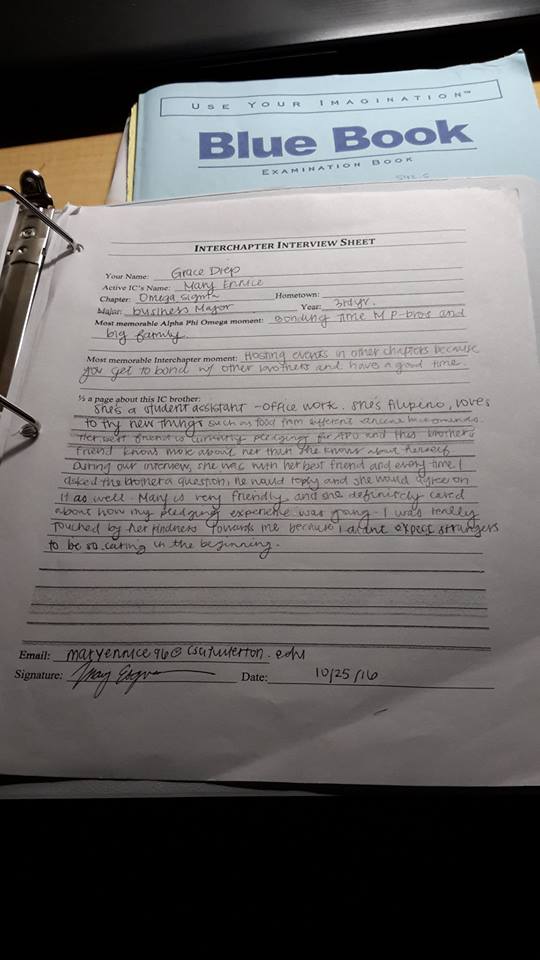 USE YOUR IMAGINATION™
Blue Book
EXAMINATION BOOK
INTERCHAPTER INTERVIEW SHEET
Your Name: Grace Diep
Active IC's Name: Mary Ennice
Chapter: Omega Sigma Hometown:
Major: business Major Year: 3rd yr.
Most memorable Alpha Phi Omega moment: Bonding time P-bros and
big family.
Most memorable Interchapter moment: Hosting events in other chapters because
you get to bond w/ other brothers and have a good time.
½ a page about this IC brother:
She's a student assistant - office work. She's filipino, loves
to try new things such as food from different
Her best friend is currently pledging for APO and this brother's
friend knows more about her than she knows about herself
During our interview, she was with her best friend and every time I
asked the brother a question, he would reply and she would agree on
it as well. Mary is very friendly and she definitely cared
about how my pledging experience was going. I was really
touched by her kindness towards me because I didnt expect strangers
to be so caring in the beginning.
Email: maryennice96@csu.fullerton.edu
Signature: Date: 10/25/16